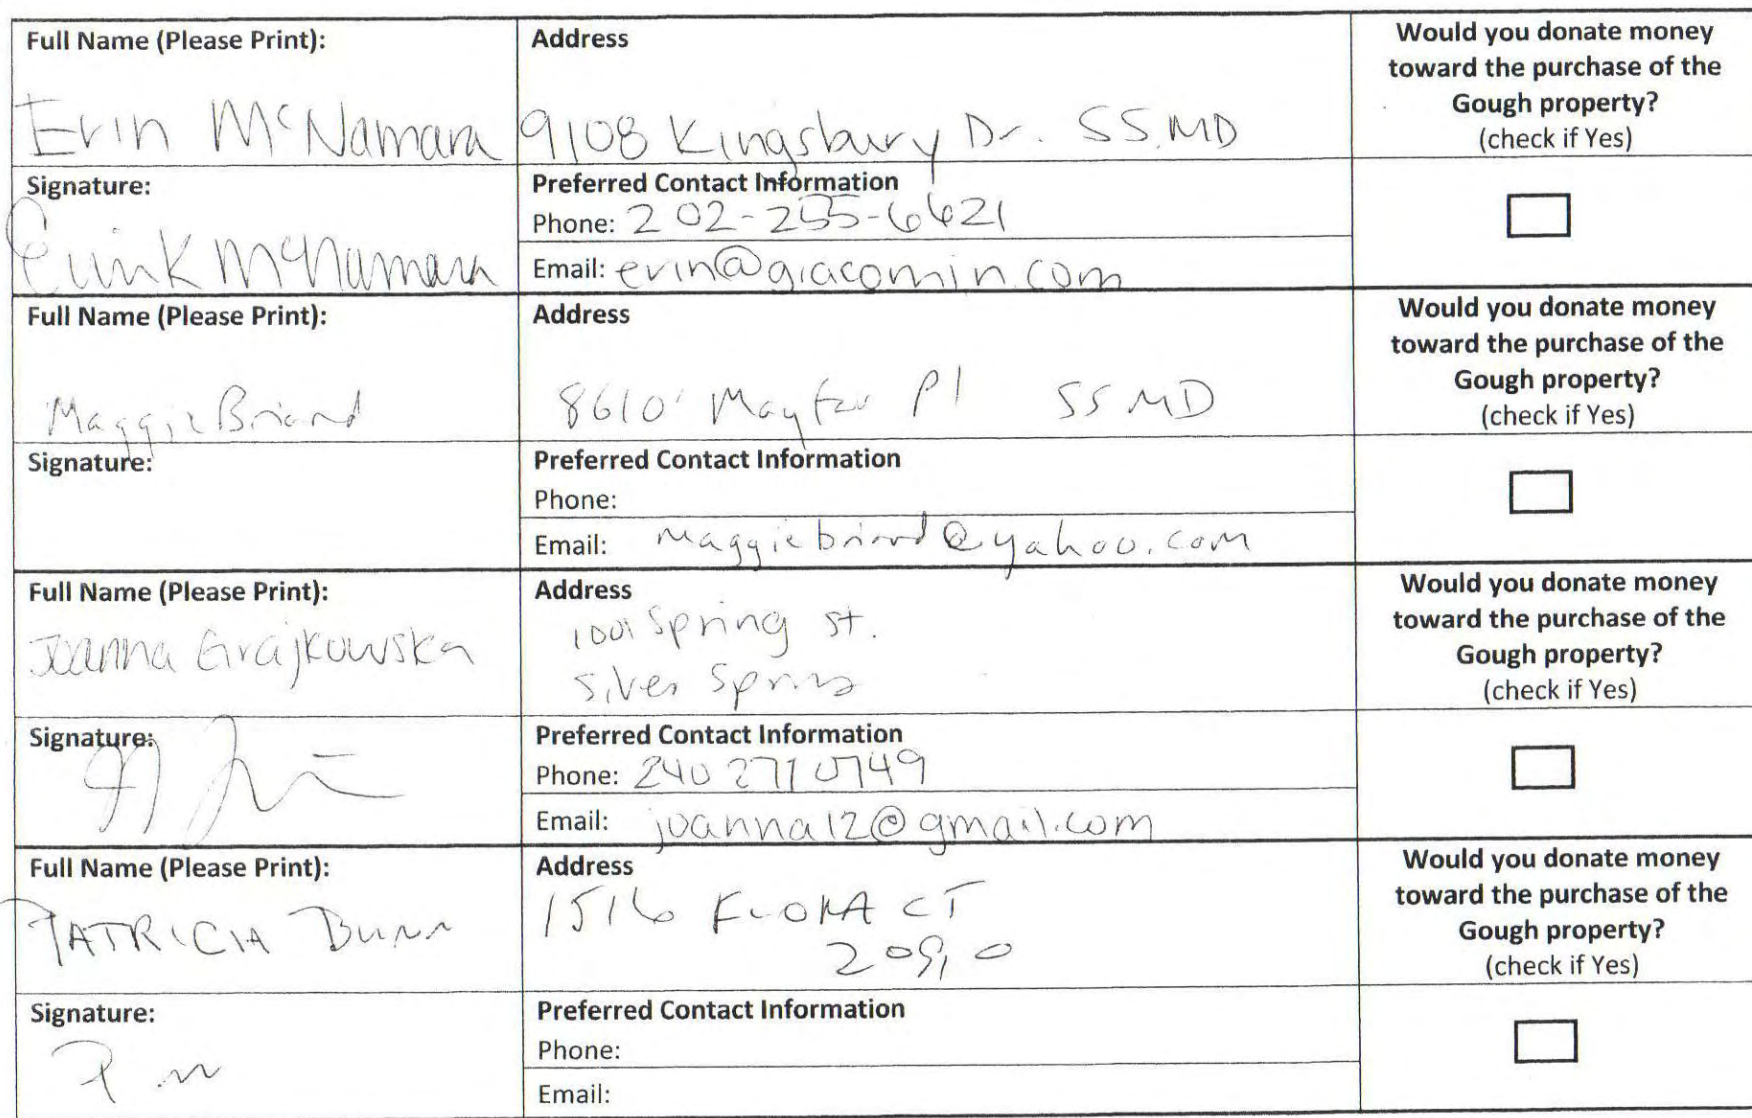 Full Name (Please Print):
Erin McNamara
Address
9108 Kingsbury Dr. SS.MD
Would you donate money
toward the purchase of the
Gough property?
(check if Yes)
Signature:
Erin K McNamara
Preferred Contact Information
Phone: 202-255-6621
Email: erin@giacomin.com
Full Name (Please Print):
Maggie Briand
Address
8610 Mayfair Pl SS MD
Would you donate money
toward the purchase of the
Gough property?
(check if Yes)
Signature:
Preferred Contact Information
Phone:
Email: maggiebriand@yahoo.com
Full Name (Please Print):
Joanna Grajkowska
Address
1001 Spring st.
Silver Spring
Would you donate money
toward the purchase of the
Gough property?
(check if Yes)
Signature:
Preferred Contact Information
Phone: 240 271 0749
Email: joanna12@gmail.com
Full Name (Please Print):
PATRICIA Bunn
Address
1516 FLORA CT
20910
Would you donate money
toward the purchase of the
Gough property?
(check if Yes)
Signature:
Preferred Contact Information
Phone:
Email: